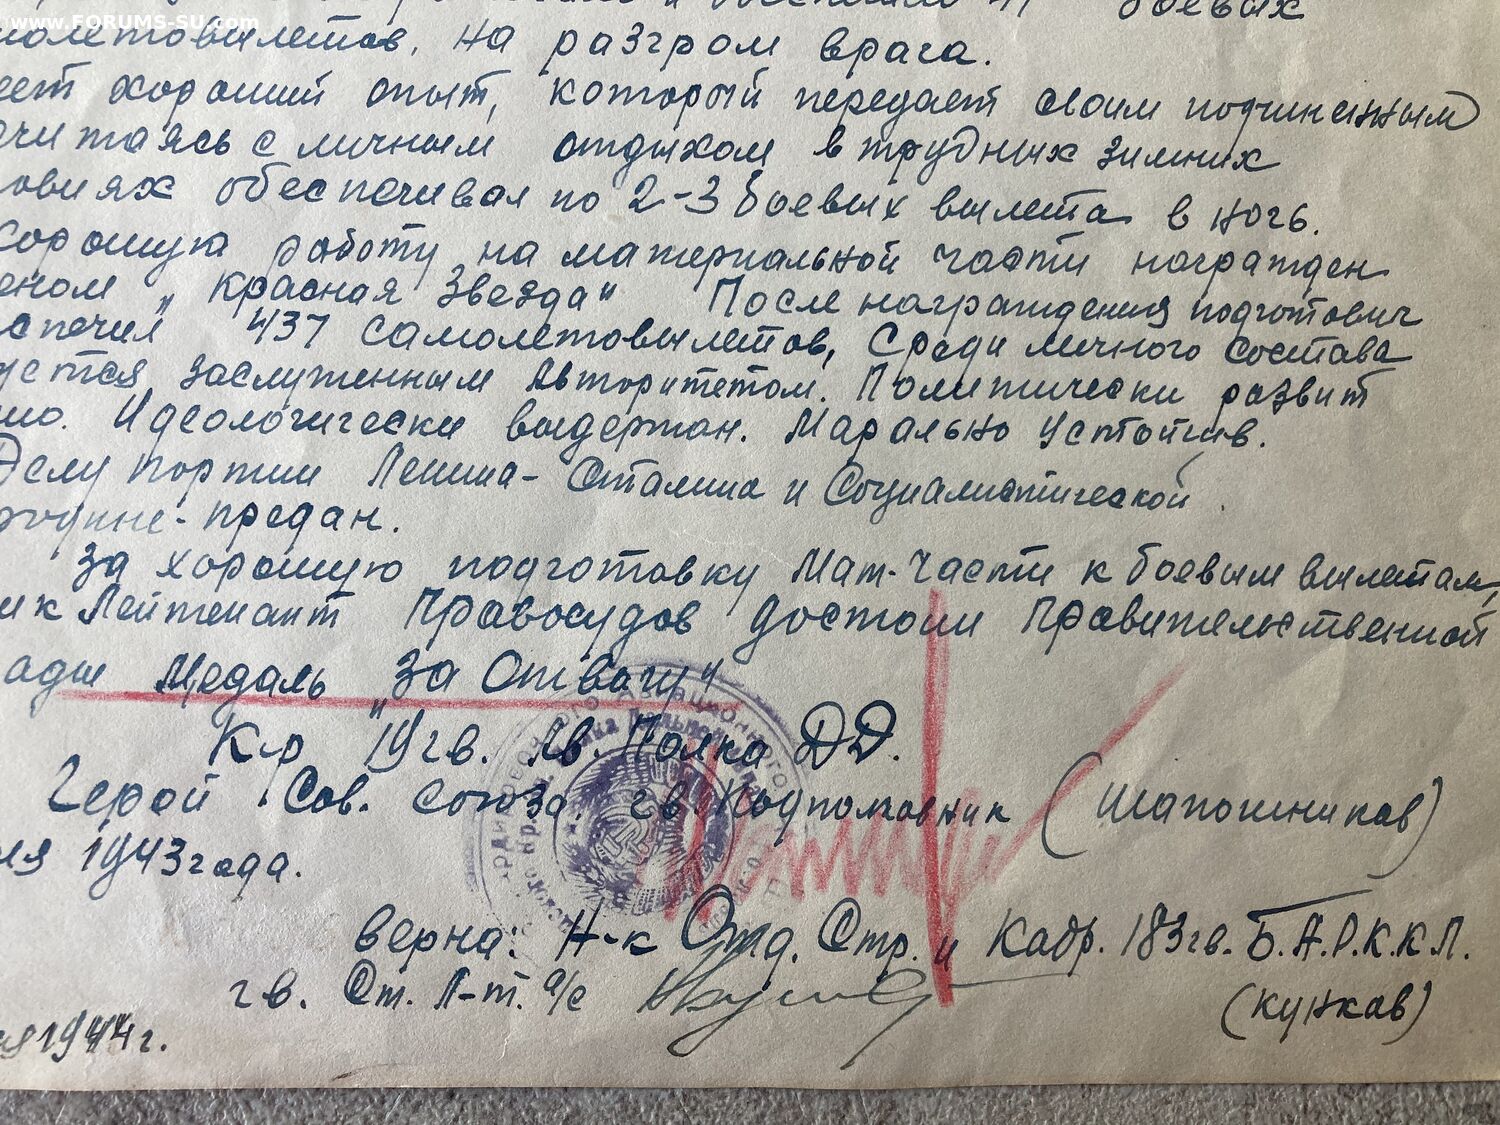 www.FORUMS-SU.com
боевых
молетовылетов, на разгром врага.
еет хороший опыт, который передает своим подчиненным
читаясь с личным отдыхом в трудных зимних
овиях обеспечивал по 2-3 боевых вылета в ночь.
хорошую работу на материальной части награжден
еном „Красная Звезда" После награждения подготовил
спечил 437 самолетовылетов, Среди личного состава
уется заслуженным Авторитетом. Политически развит
шо. Идеологически выдержан. Марально устойчив.
Делу партии Ленина-Сталина и Социалистической
родине-предан.
За хорошую подготовку Мат-Части к боевым вылетам,
ик Лейтенант Правосудов достоин Правительственной
ады Медаль „За Отвагу"
К-р 1 Гв. Ав. Полка ДД.
Герой Сов. Союза. гв. Подполковник (Шапошников)
ня 1943 года.
верна: Н-к Отд. Стр. и Кадр. 183 гв. Б.А.Р.К.К.Л.
гв. Ст. Л-т. а/с (Кунков)
я 1944 г.